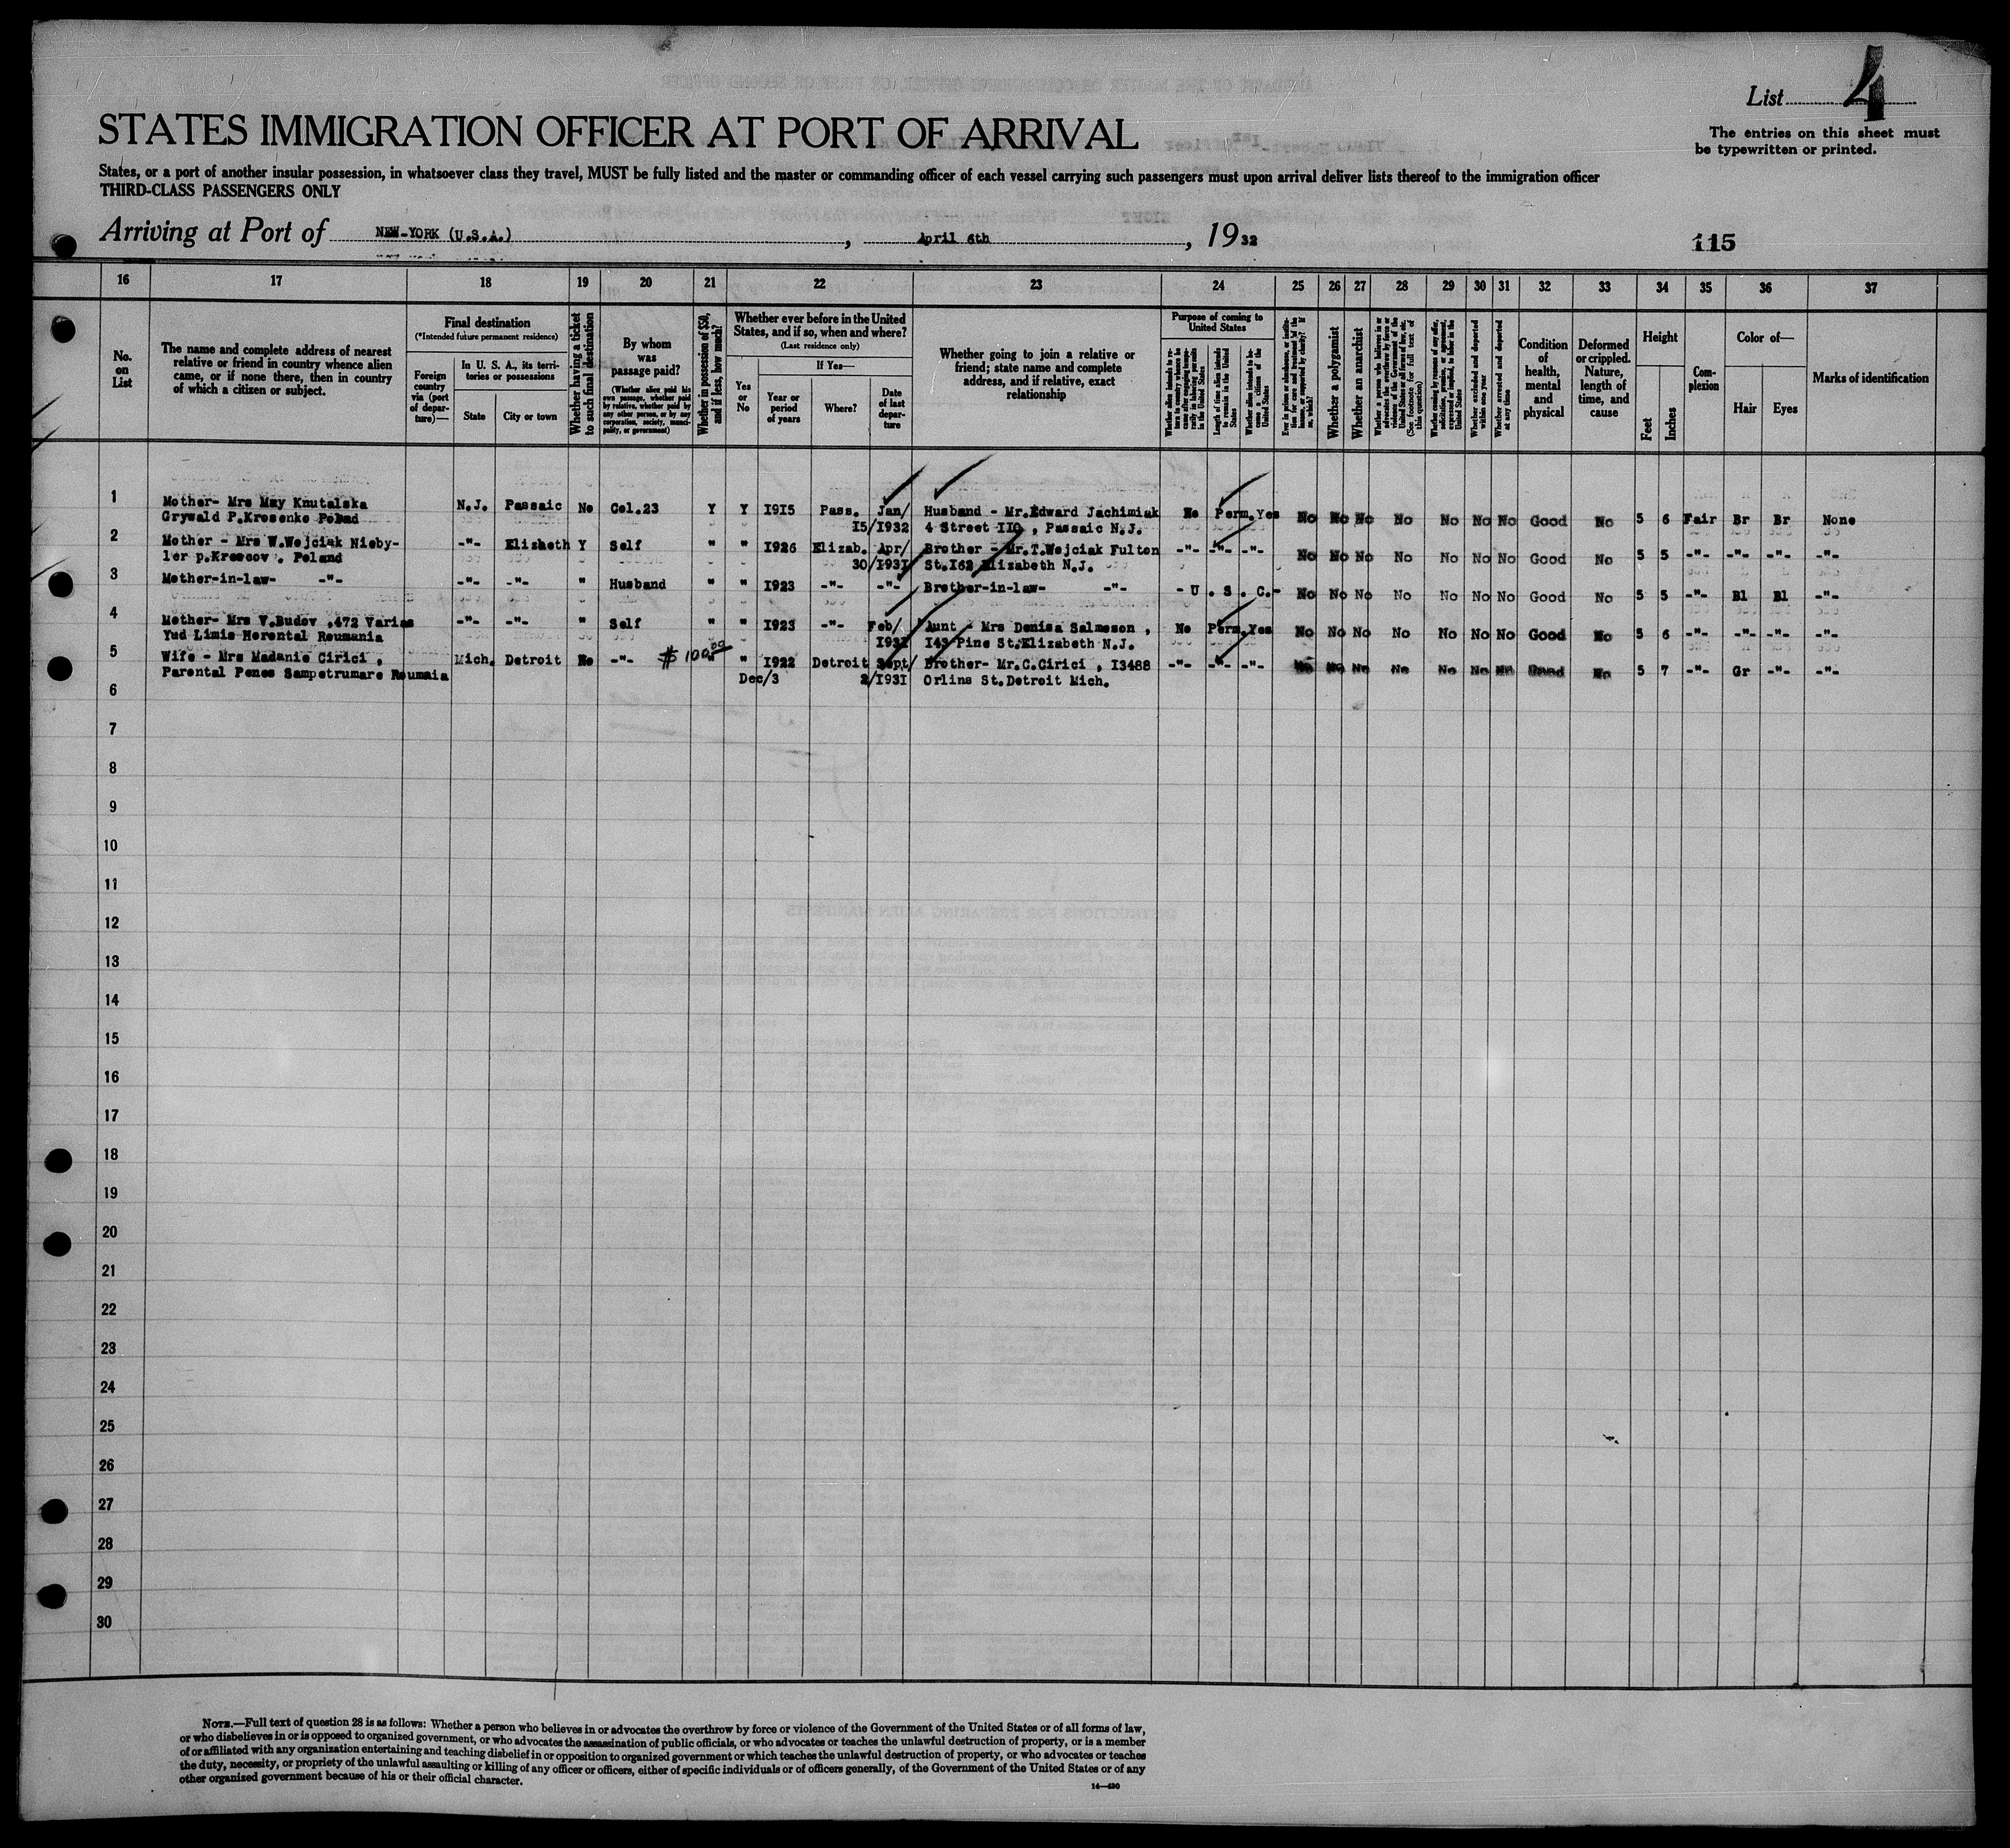 List 4
The entries on this sheet must
be typewritten or printed.
STATES IMMIGRATION OFFICER AT PORT OF ARRIVAL
States, or a port of another insular possession, in whatsoever class they travel, MUST be fully listed and the master or commanding officer of each vessel carrying such passengers must upon arrival deliver lists thereof to the immigration officer
THIRD-CLASS PASSENGERS ONLY
Arriving at Port of NEW-YORK (U.S.A.), April 6th, 1932
115
16 17 18 19 20 21 22 23 24 25 26 27 28 29 30 31 32 33 34 35 36 37
No. on List
The name and complete address of nearest
relative or friend in country whence alien
came, or if none there, then in country
of which a citizen or subject.
Final destination
(*Intended future permanent residence)
Foreign country via (port of departure)—
In U. S. A., its territories or possessions
State
City or town
Whether having a ticket to such final destination
By whom was passage paid?
(Whether alien paid his own passage, whether paid by relative, whether paid by any other person, or by any corporation, society, municipality, or government)
Whether in possession of $50, and if less, how much?
Whether ever before in the United States, and if so, when and where?
(Last residence only)
Yes or No
If Yes—
Year or period of years
Where?
Date of last departure
Whether going to join a relative or
friend; state name and complete
address, and if relative, exact
relationship
Purpose of coming to United States
Whether alien intends to return to country whence he came after engaging temporarily in laboring pursuits in the United States
Length of time alien intends to remain in the United States
Whether alien intends to become a citizen of the United States
Ever in prison or almshouse, or institution for care and treatment of the insane, or supported by charity? If so, which?
Whether a polygamist
Whether an anarchist
Whether a person who believes in or advocates the overthrow by force or violence of the Government of the United States or all forms of law, etc. (See footnote for full text of this question)
Whether coming by reason of any offer, solicitation, promise, or agreement, expressed or implied, to labor in the United States
Whether excluded and deported within one year
Whether arrested and deported at any time
Condition of health, mental and physical
Deformed or crippled. Nature, length of time, and cause
Height
Feet
Inches
Complexion
Color of—
Hair
Eyes
Marks of identification
1 Mother- Mrs May Knutalska N.J. Passaic No Col.23 Y Y I9I5 Pass. Jan/ Husband - Mr.Edward Jachimiak No Perm. Yes No No No No No No No Good No 5 6 Fair Br Br None
Grywald P.Krosenko Polad I5/I932 4 Street IIO , Passaic N.J.
2 Mother - Mrs W.Wojciak Nieby- -"- Elizbeth Y Self " " I926 Elizab. Apr/ Brother - Mr.T.Wojciak Fulton -"- -"- -"- No No No No No No No Good No 5 5 -"- -"- -"- -"-
ler p.Kroscov . Poland 30/I93I St.I62 Elizabeth N.J.
3 Mother-in-law- -"- -"- -"- " Husband " " I923 -"- -"- Brother-in-law- -"- - U . S . C.- No No No No No No No Good No 5 5 -"- Bl Bl -"-
4 Mother- Mrs V.Budov .472 Varias -"- -"- " Self " " I923 -"- Feb/ Aunt - Mrs Denisa Salmeson , No Perm. Yes No No No No No No No Good No 5 6 -"- -"- -"- -"-
Yud Limis Herental Roumania I93I I43 Pine St.Elizabeth N.J.
5 Wife - Mrs Madanie Cirici , Mich. Detroit No -"- $ 100.00 " " I922 Detroit Sept/ Brother- Mr.C.Cirici , I3488 -"- -"- -"- No No No No No No No Good No 5 7 -"- Gr -"- -"-
Parental Penes Sampetrumare Roumaia Dec/3 2/I93I Orlins St.Detroit Mich.
6
7
8
9
10
11
12
13
14
15
16
17
18
19
20
21
22
23
24
25
26
27
28
29
30
NOTE.—Full text of question 28 is as follows: Whether a person who believes in or advocates the overthrow by force or violence of the Government of the United States or of all forms of law,
or who disbelieves in or is opposed to organized government, or who advocates the assassination of public officials, or who advocates or teaches the unlawful destruction of property, or is a member
of or affiliated with any organization entertaining and teaching disbelief in or opposition to organized government or which teaches the unlawful destruction of property, or who advocates or teaches
the duty, necessity, or propriety of the unlawful assaulting or killing of any officer or officers, either of specific individuals or of officers generally, of the Government of the United States or of any
other organized government because of his or their official character.
14—430